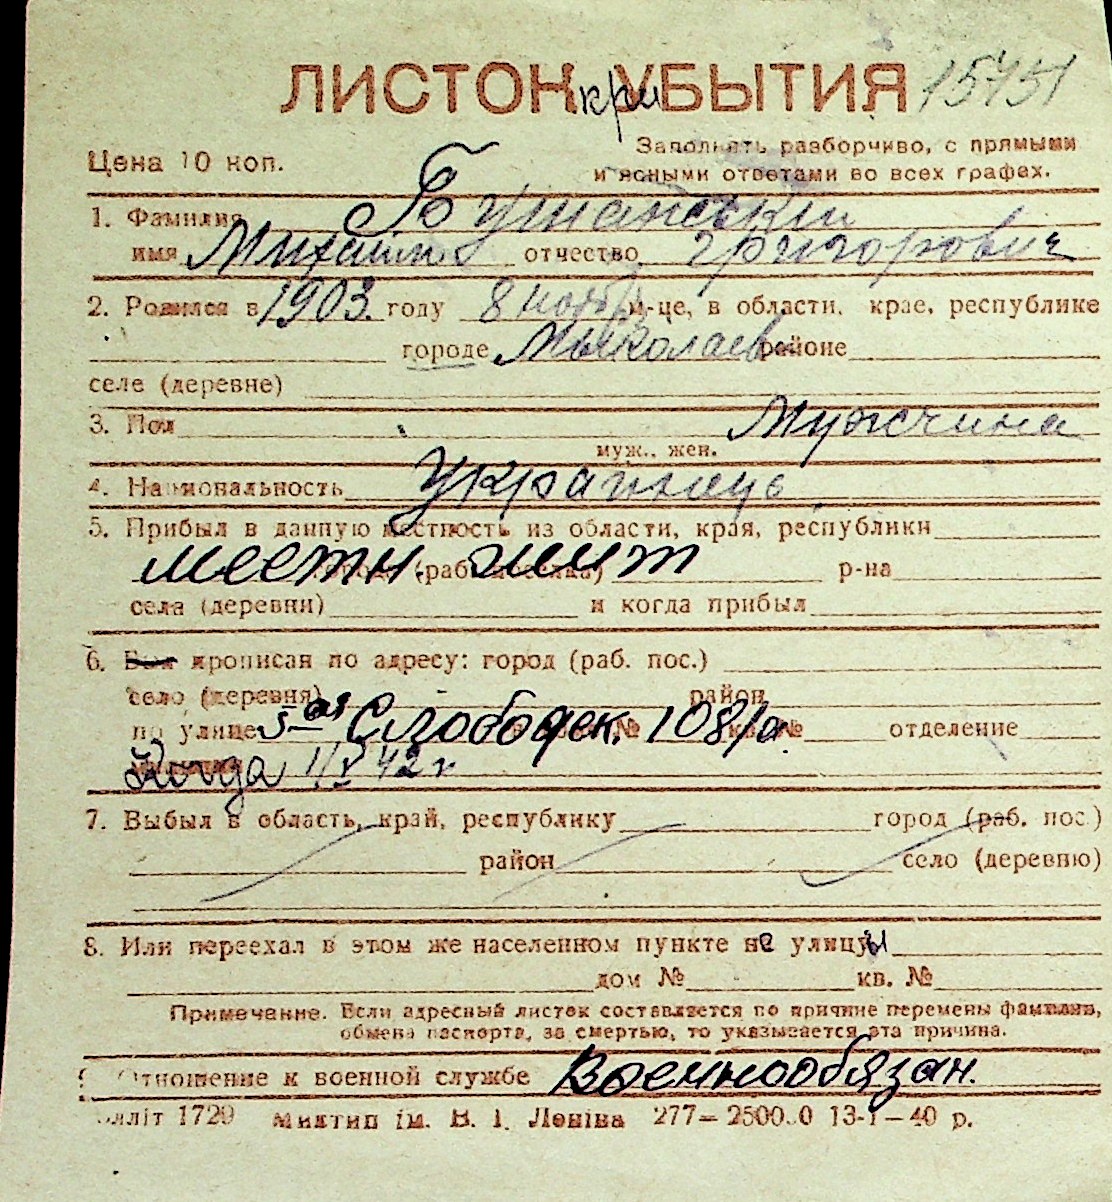 ЛИСТОК УБЫТИЯ 15751
при
Цена 10 коп.
Заполнять разборчиво, с прямыми
и ясными ответами во всех графех.
1. Фамилия
имя Михаил отчество григорович
2. Родился в 1903. году 8 ноября м-це, в области, крае, республике
городе Мыколаев районе
селе (деревне)
3. Пол Мужсчина
муж., жен.
4. Национальность Українець
5. Прибыл в данную местность из области, края, республики
местн. жит
города (раб. поселка) р-на
села (деревни) и когда прибыл
6. Был прописан по адресу: город (раб. пос.)
село (деревня) район
по улице 5-ая Слободск. 108/а № кв. № отделение
Когда 1/V 42 г
7. Выбыл в область, край, республику город (раб. пос.)
район село (деревню)
8. Или переехал в этом же населенном пункте не улицы
дом № кв. №
Примечание. Если адресный листок составляется по причине перемены фамилии,
обмена паспорта, за смертью, то указывается эта причина.
9. Отношение к военной службе Военнообязан.
літ 1729 Миктип ім. В. І. Леніна 277—2500.0 13-1-40 р.